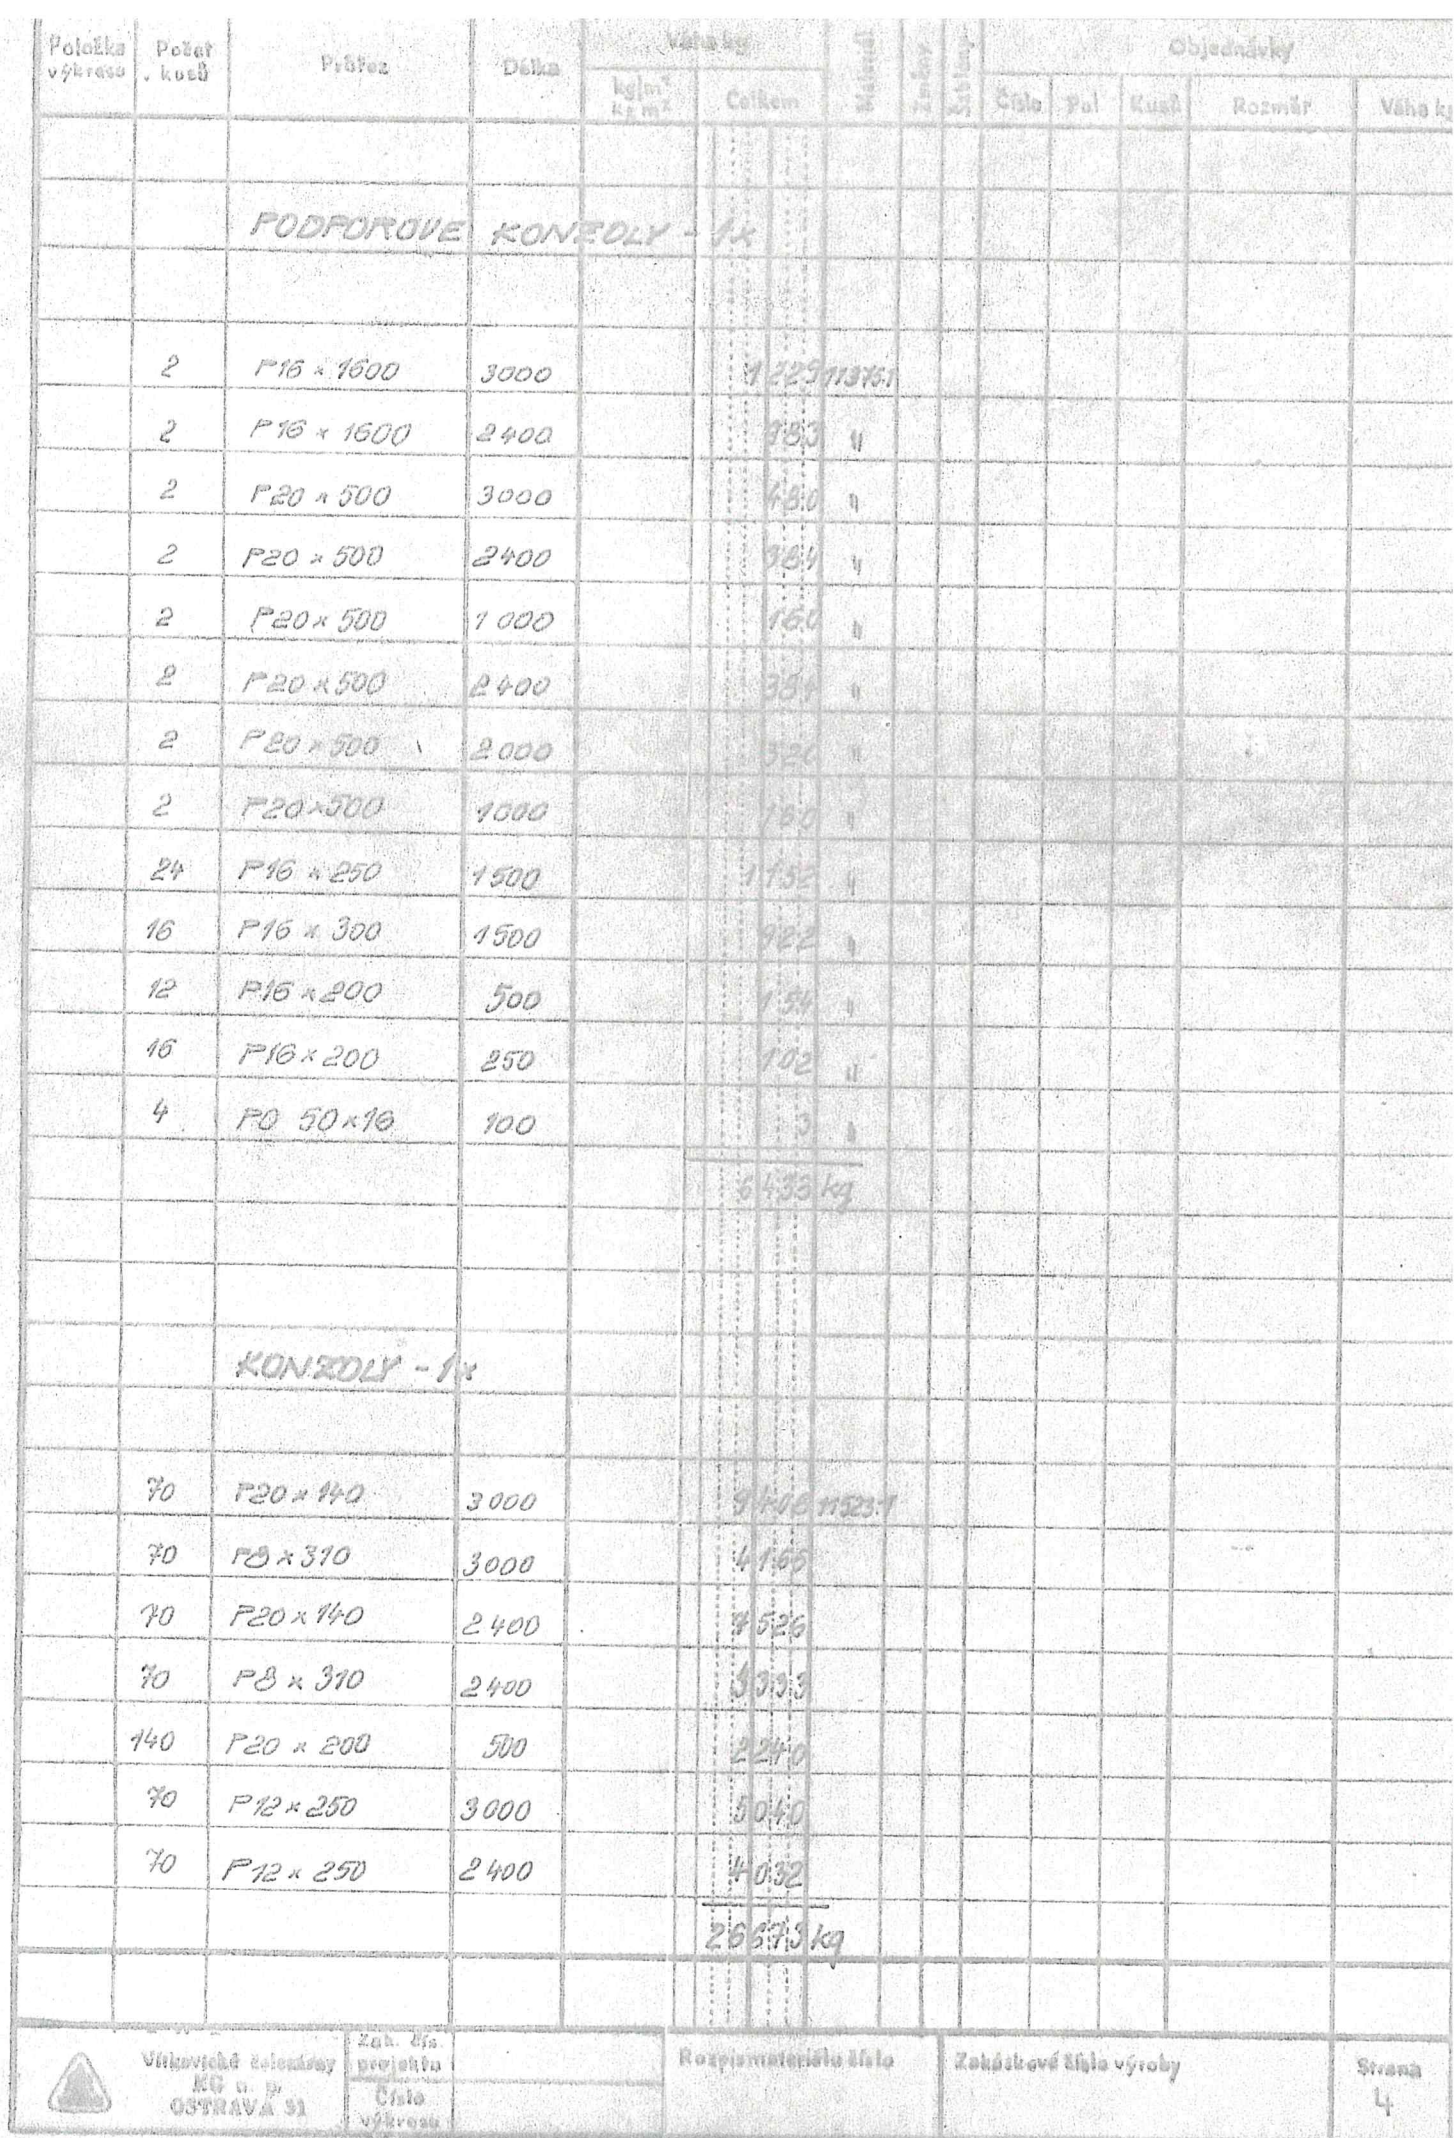 Položka výkresu Počet kusů Průřez Délka Váha kg kg/m kg m² Celkem Materiál Změny Objednávky Číslo Pol Kusů Rozměr Váha kg
PODPOROVE KONZOLY - 1x
2 P16 x 1600 3000 1229 11375.1
2 P16 x 1600 2400 983 "
2 P20 x 500 3000 480 "
2 P20 x 500 2400 384 "
2 P20 x 500 1000 160 "
2 P20 x 500 2400 384 "
2 P20 x 500 2000 320 "
2 P20 x 500 1000 160 "
24 P16 x 250 1500 1152 "
16 P16 x 300 1500 922 "
12 P16 x 200 500 154 "
16 P16 x 200 250 102 "
4 PO 50 x 16 100 3 "
6433 kg
KONZOLY - 1x
70 P20 x 140 3000 9408 11523.1
70 P8 x 310 3000 4166
70 P20 x 140 2400 7526
70 P8 x 310 2400 3333
140 P20 x 200 500 2240
70 P12 x 250 3000 5040
70 P12 x 250 2400 4032
26673 kg
Vítkovické železárny
KG n. p.
OSTRAVA 31
Zak. čís. projektu
Číslo výkresu
Rozpis materiálu číslo
Zakázkové číslo výroby
Strana
4